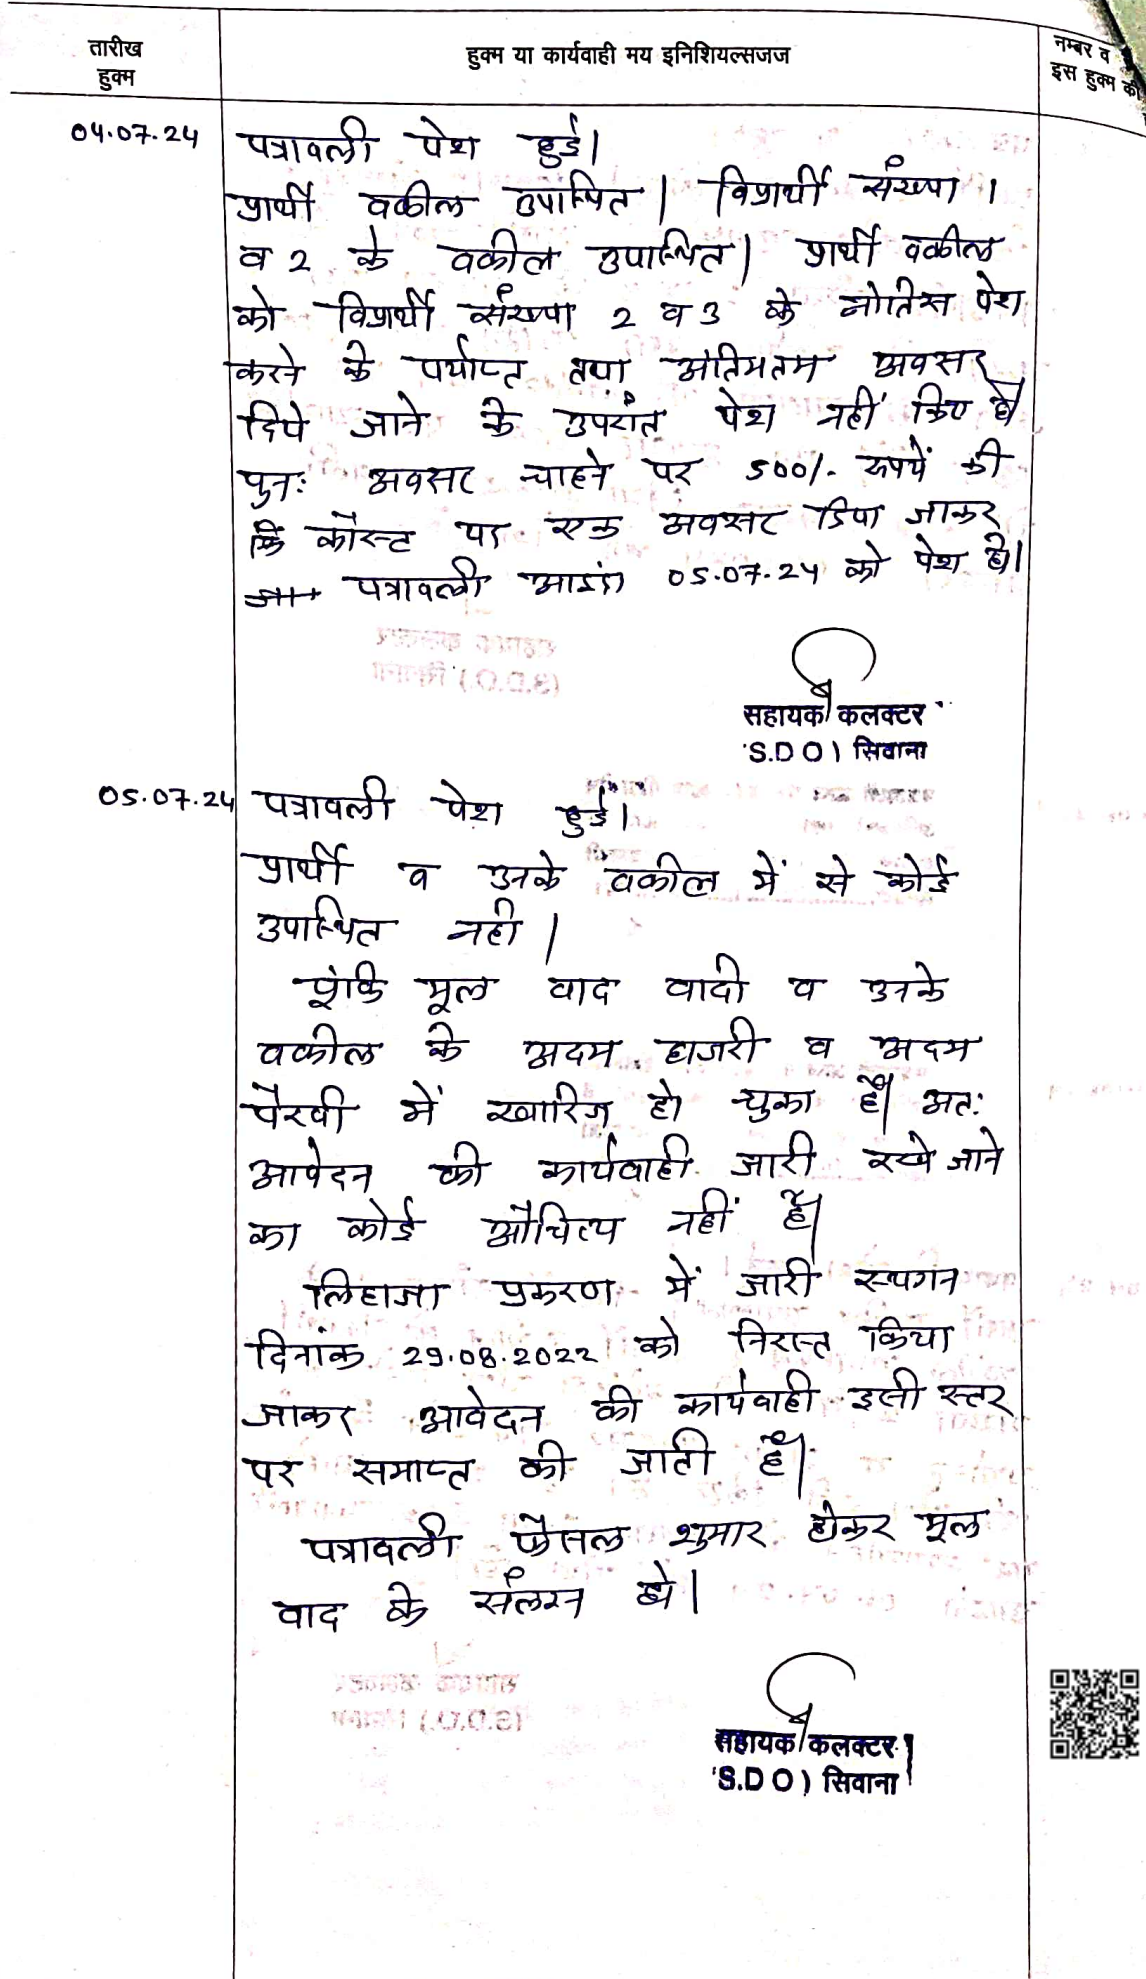 तारीख
हुक्म
हुक्म या कार्यवाही मय इनिशियल्सजज
नम्बर व
इस हुक्म की
04.07.24 पत्रावली पेश हुई।
प्रार्थी वकील उपस्थित। विप्रार्थी संख्या 1
व 2 के वकील उपस्थित। प्रार्थी वकील
को विप्रार्थी संख्या 2 व 3 के नोटिस पेश
करने के पर्याप्त तथा अंतिमतम अवसर
दिये जाने के उपरांत पेश नहीं किए है
पुनः अवसर चाहने पर 500/- रुपये की
कॉस्ट पर एक अवसर दिया जाकर
पत्रावली आइंदा 05.07.24 को पेश हो।
सहायक कलक्टर
(S.D.O) सिवाना
05.07.24 पत्रावली पेश हुई।
प्रार्थी व उनके वकील में से कोई
उपस्थित नही।
चूंकि मूल वाद वादी व उनके
वकील के अदम हाजरी व अदम
पैरवी में खारिज हो चुका है। अतः
आवेदन की कार्यवाही जारी रखे जाने
का कोई औचित्य नहीं है।
लिहाजा प्रकरण में जारी स्थगन
दिनांक 29.08.2022 को निरस्त किया
जाकर आवेदन की कार्यवाही इसी स्तर
पर समाप्त की जाती है।
पत्रावली फैसल शुमार होकर मूल
वाद के संलग्न हो।
सहायक कलक्टर
(S.D.O) सिवाना